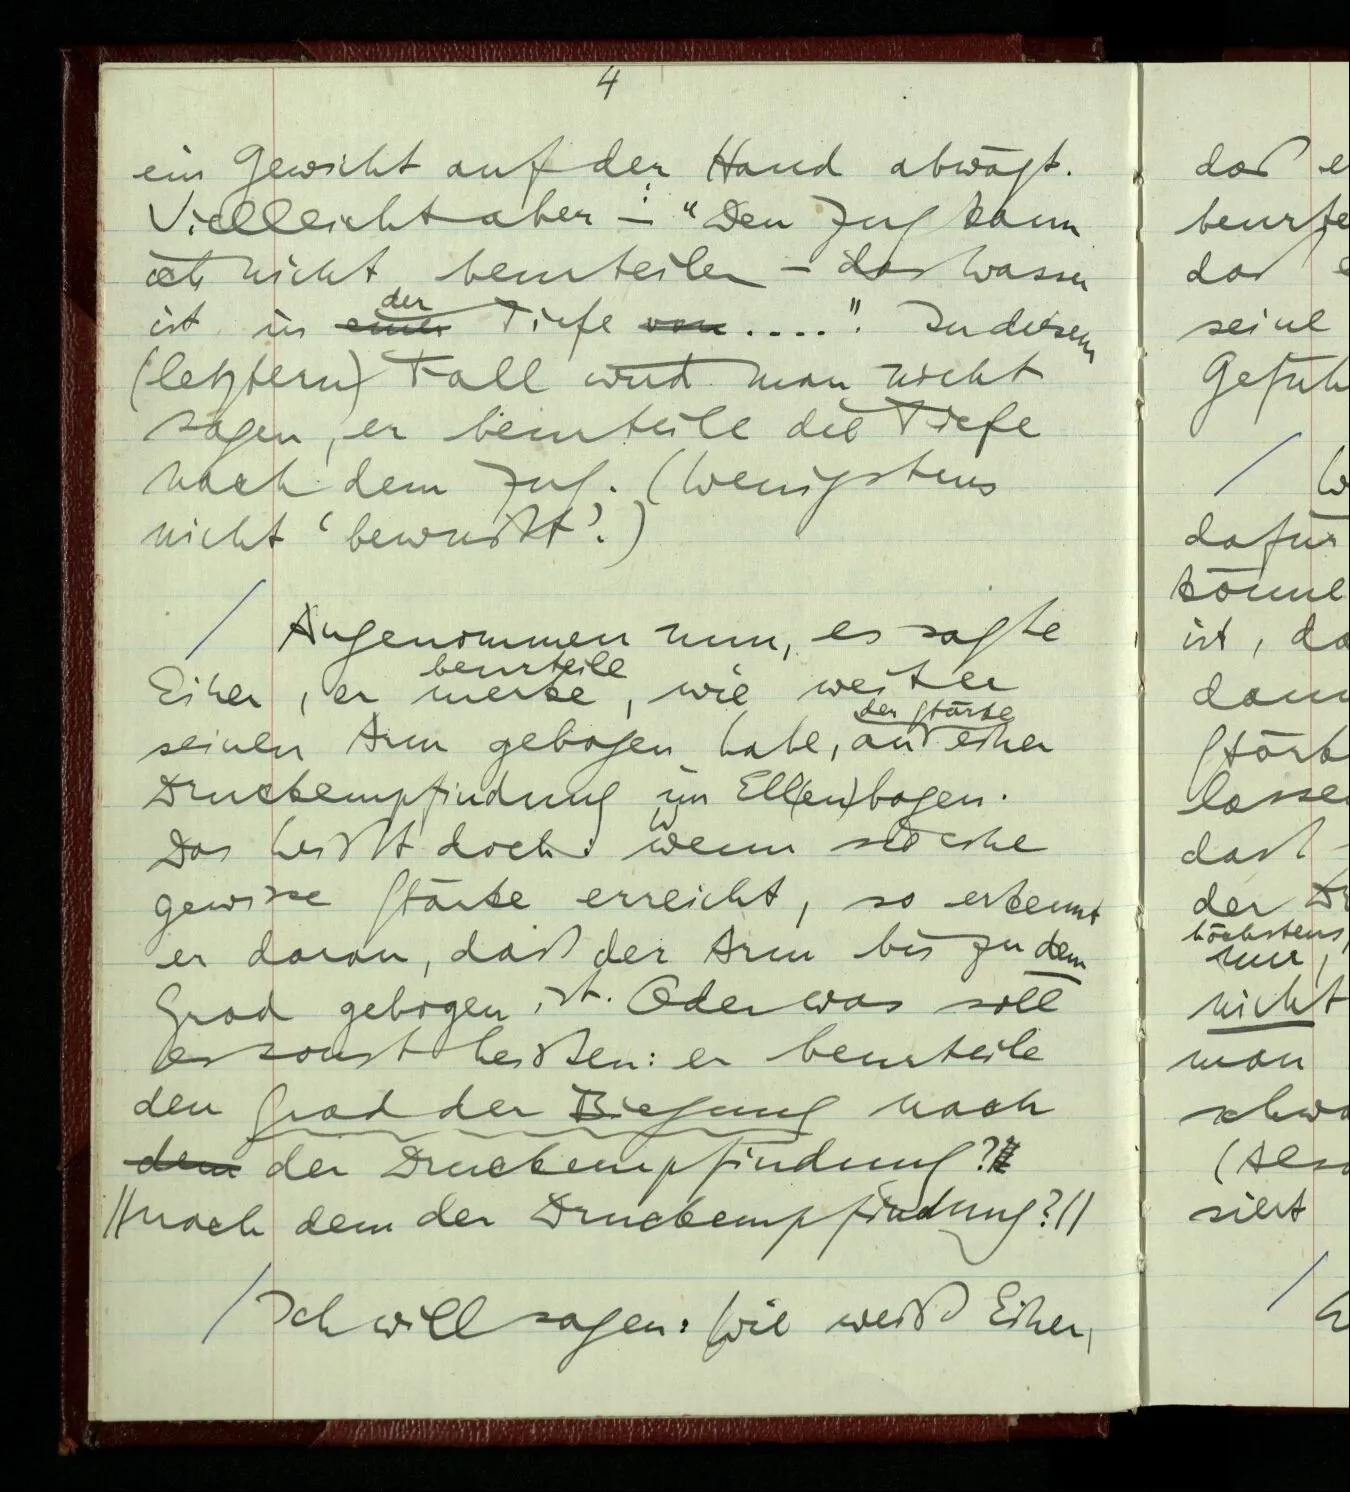 4
ein Gewicht auf der Hand abwägt.
Vielleicht aber –: "Den Zug kann
ich nicht beurteilen – das Wasser
der
ist in einer Tiefe von ....". In diesem
(letztern) Fall wird man nicht
sagen, er beurteile die Tiefe
nach dem Zug. (Wenigstens
nicht 'bewußt'.)
/ Angenommen nun, es sagte
beurteile
Einer, er merke, wie weit er
der Stärke
seinen Arm gebogen habe, aus einer
Druckempfindung im Ell(en)bogen.
Das heißt doch: wenn sie eine
gewisse Stärke erreicht, so erkennt
er daran, daß der Arm bis zu dem
Grad gebogen ist. Oder was soll
es sonst heißen: er beurteile
den Grad der Biegung nach
dem der Druckempfindung?
//nach dem der Druckempfindung?//
/ Ich will sagen: Wie weiß Einer,
daß e
beurte
das
seine
Gefüh
/ W
dafür
könne
ist, da
dann
Stärk
lasse
daß
der Dr
höchstens,
nur,
nicht
man
schwa
(Also
sieht
/